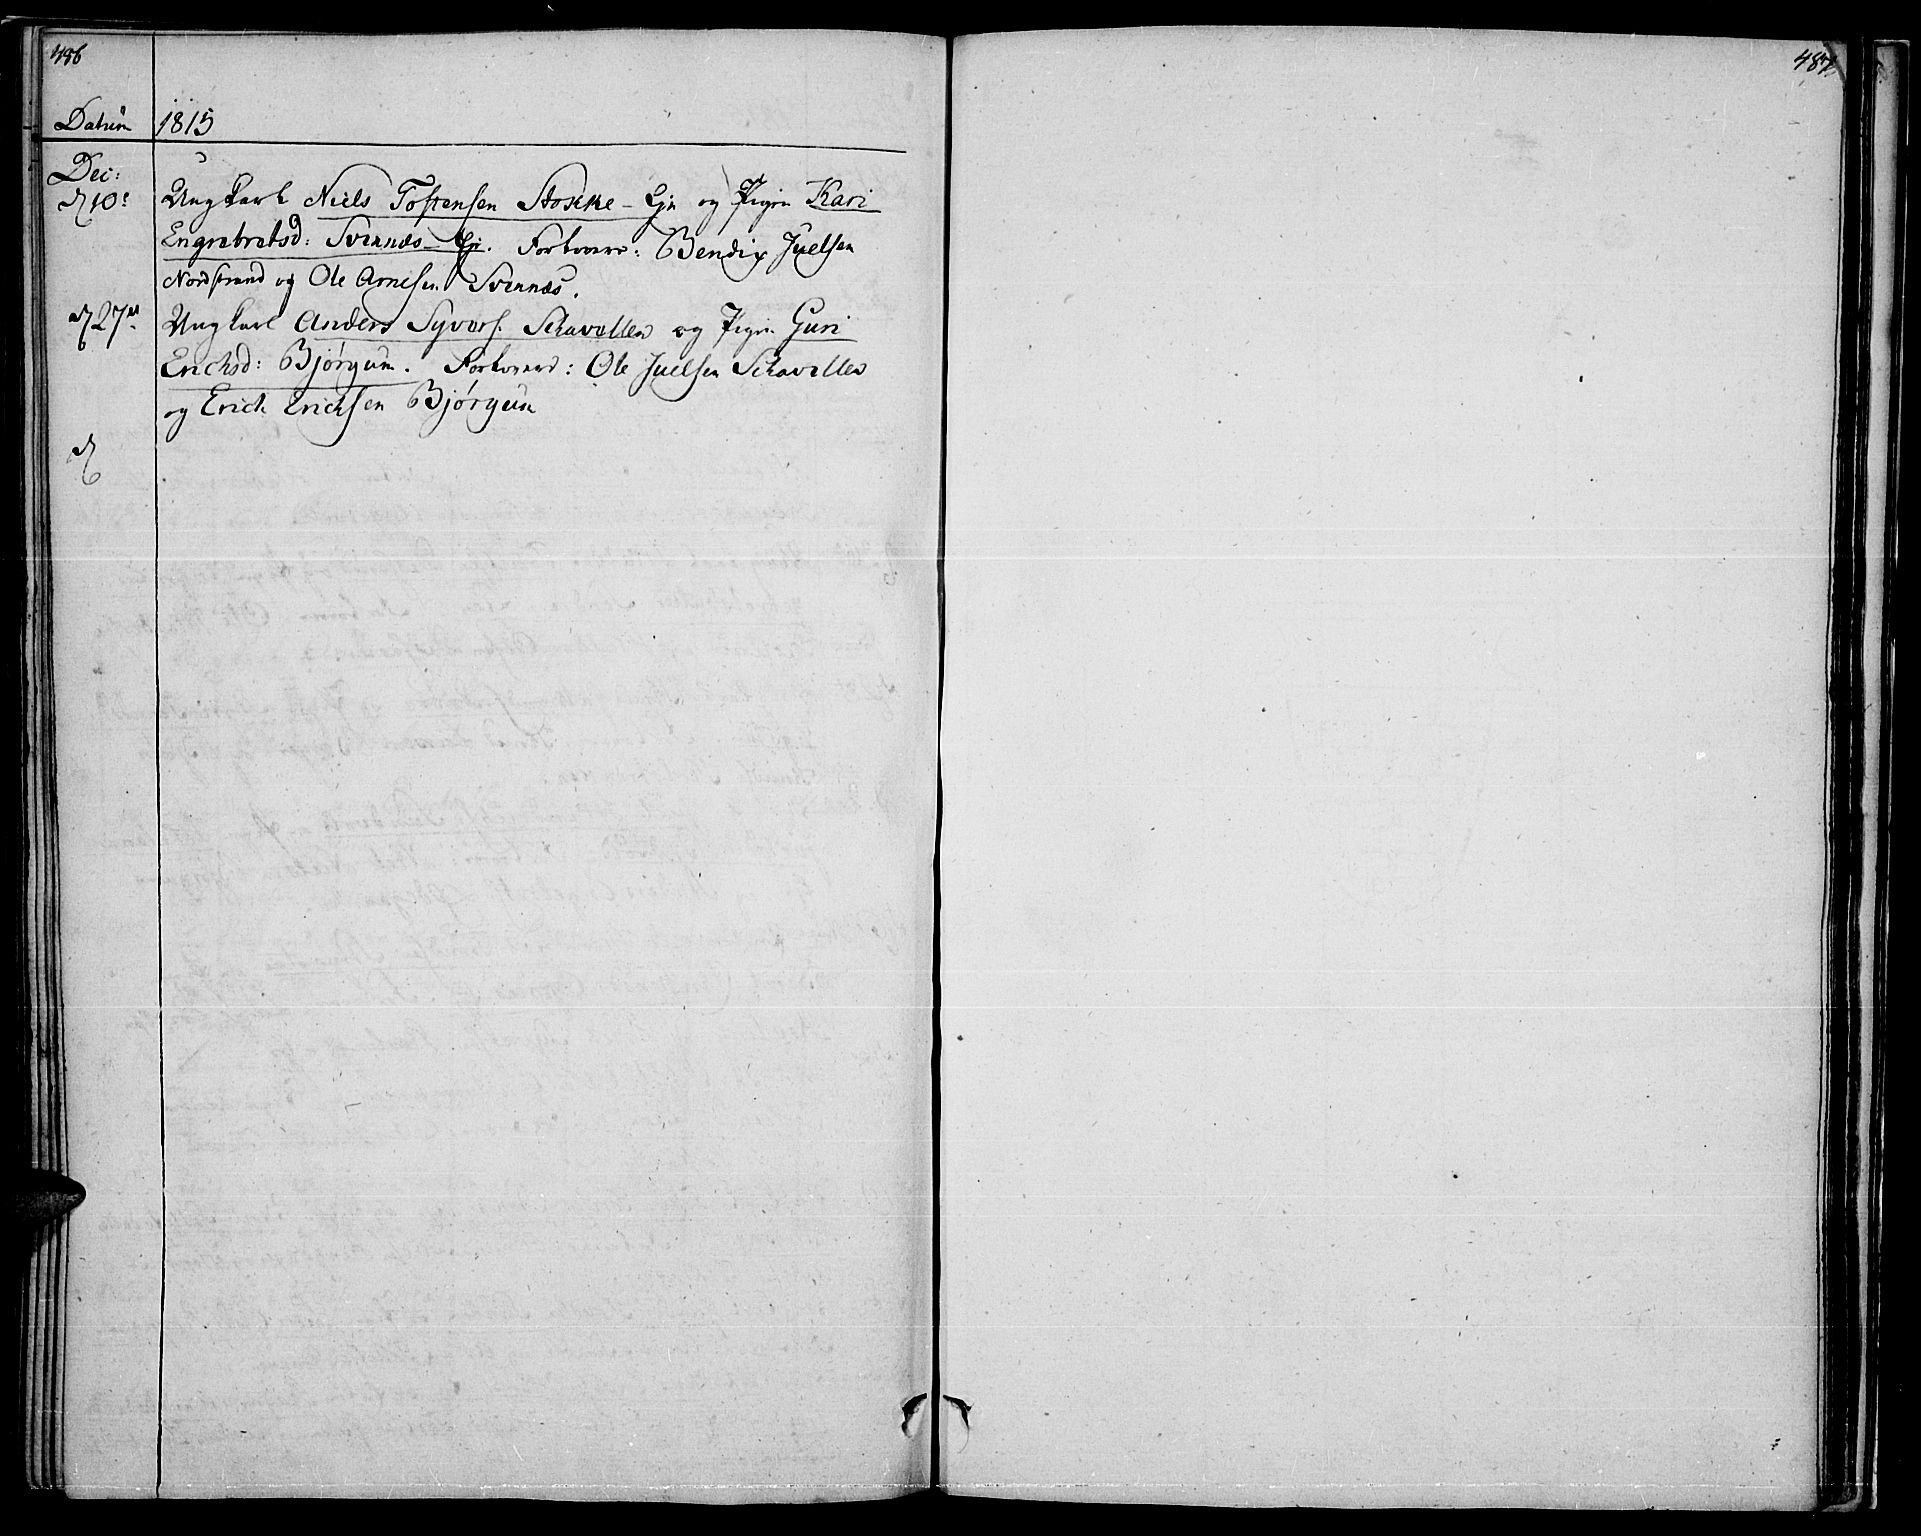 486
Datum 1815
Dec:
d 10: Ungkarl Niels Tostensen Stokke - Ejn og Pigen Kari
Engebretsd: Svennæs - Ejn. Forlovere: Bendix Juelsen
Nordstrand og Ole Arnesen Svennæs.
d 27de Ungkarl Anders Syvers. Schavellen og Pigen Guri
Erichsd: Bjørgum. Forlovere: Ole Juelsen Schavellen
og Erick Ericksen Bjørgum
d
487